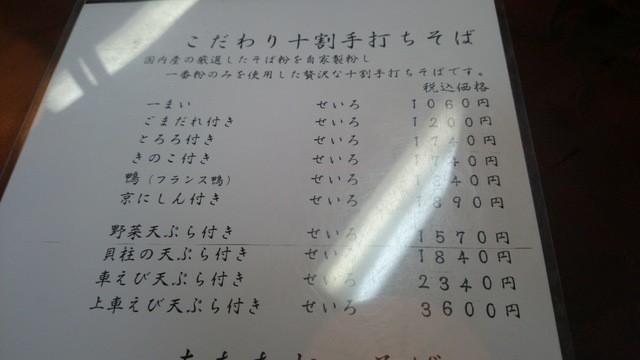 こだわり十割手打ちそば
国内産の厳選したそば粉を自家製粉し
一番粉のみを使用した贅沢な十割手打ちそばです。
税込価格
一まい せいろ 1060円
ごまだれ付き せいろ 1200円
とろろ付き せいろ 1740円
きのこ付き せいろ 1740円
鴨(フランス鴨) せいろ 1840円
京にしん付き せいろ 1890円
野菜天ぷら付き せいろ 1570円
貝柱の天ぷら付き せいろ 1840円
車えび天ぷら付き せいろ 2340円
上車えび天ぷら付き せいろ 3600円